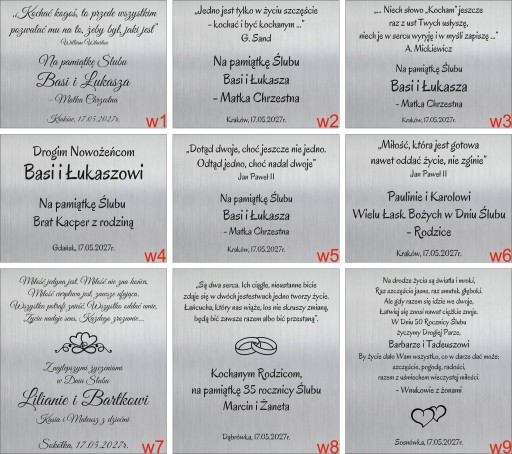 „Kochać kogoś, to przede wszystkim
pozwalać mu na to, żeby był, jaki jest"
William Wharton
Na pamiątkę Ślubu
Basi i Łukasza
- Matka Chrzestna
Kraków, 17.05.2027r.
w1
„Jedno jest tylko w życiu szczęście
- kochać i być kochanym ..."
G. Sand
Na pamiątkę Ślubu
Basi i Łukasza
- Matka Chrzestna
Kraków, 17.05.2027r.
w2
„... Niech słowo „Kocham" jeszcze
raz z ust Twych usłyszę,
niech je w sercu wyryję i w myśli zapiszę ..."
A. Mickiewicz
Na pamiątkę Ślubu
Basi i Łukasza
- Matka Chrzestna
Kraków, 17.05.2027r.
w3
Drogim Nowożeńcom
Basi i Łukaszowi
Na pamiątkę Ślubu
Brat Kacper z rodziną
Gdańsk, 17.05.2027r.
w4
„Dotąd dwoje, choć jeszcze nie jedno.
Odtąd jedno, choć nadal dwoje"
Jan Paweł II
Na pamiątkę Ślubu
Basi i Łukasza
- Matka Chrzestna
Kraków, 17.05.2027r.
w5
"Miłość, która jest gotowa
nawet oddać życie, nie zginie"
Jan Paweł II
Paulinie i Karolowi
Wielu Łask Bożych w Dniu Ślubu
- Rodzice
Kraków, 17.05.2027r.
w6
Miłość jedyna jest. Miłość nie zna końca.
Miłość cierpliwa jest, zawsze ufająca.
Wszystko potrafi znieść. Wszystko oddać umie.
Życiu nadaje sens, Każdego zrozumie...
Najlepszymi życzeniami
w Dniu Ślubu
Lilianie i Bartkowi
Kasia i Mateusz z dziećmi
Sokółka, 17.05.2027r.
w7
„Są dwa serca. Ich ciągłe, nieustanne bicie
zdaje się w dwóch jestestwach jedno tworzy życie.
Łańcucha, który nas wiąże, los nie skruszy zmianą,
będą bić zawsze razem albo bić przestaną".
Kochanym Rodzicom,
na pamiątkę 35 rocznicy Ślubu
Marcin i Żaneta
Dąbrówka, 17.05.2027r.
w8
Na drodze życia są światła i mroki,
Raz szczęścia jasne, raz smutek głęboki.
Ale gdy razem się idzie we dwoje,
Łatwiej się znosi nawet ciężkie znoje.
W Dniu 50 Rocznicy Ślubu
życzymy Drogiej Parze,
Barbarze i Tadeuszowi
By życie dało Wam wszystko, co w darze dać może:
szczęście, pogodę, radości,
razem z uśmiechem wiecznystej miłości.
- Wnukowie z żonami
Sosnówka, 17.05.2027r.
w9